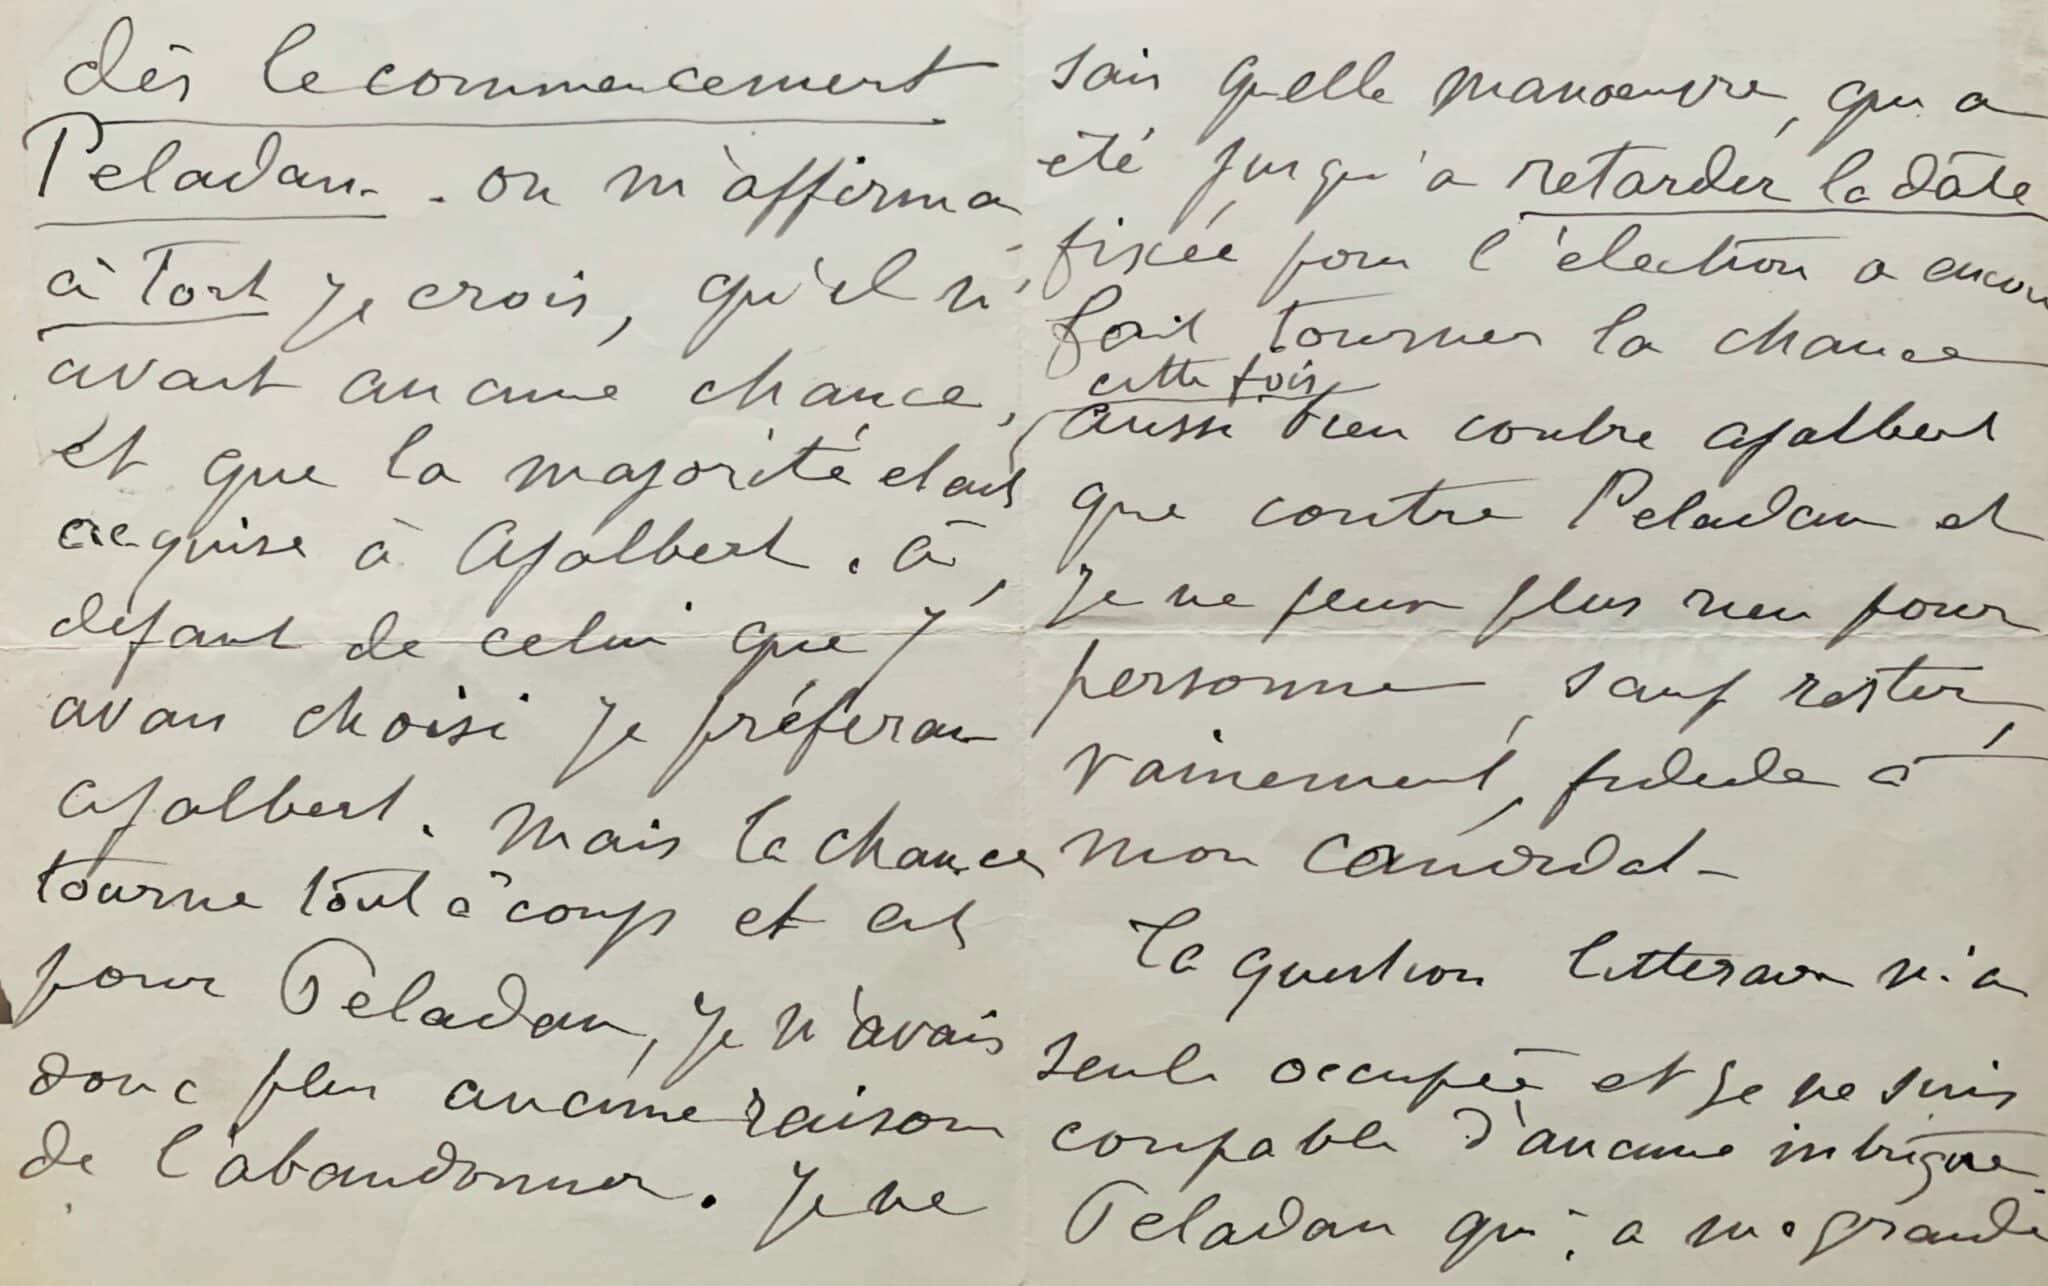 dès le commencement
Peladan. on m'affirma
à Tort je crois, qu'il n'
avait aucune chance,
et que la majorité etait
acquise à Ajalbert. à
défaut de celui que j'
avais choisi je préferais
Ajalbert. Mais la chance
tourne tout à coup et est
pour Peladan, je n'avais
donc plus aucune raison
de l'abandonner. Je ne
sais quelle manoeuvre, qui a
été jusqu'a retarder la dâte
fixée pour l'élection a encore
fait tourner la chance
cette fois
aussi bien contre Ajalbert
que contre Peladan et
je ne peux plus rien pour
personne, sauf rester,
vainement, fidele à
mon candidat –
La question litteraire m'a
seule occupée et je ne suis
coupable d'aucune intrigue
Peladan qui a ma grande